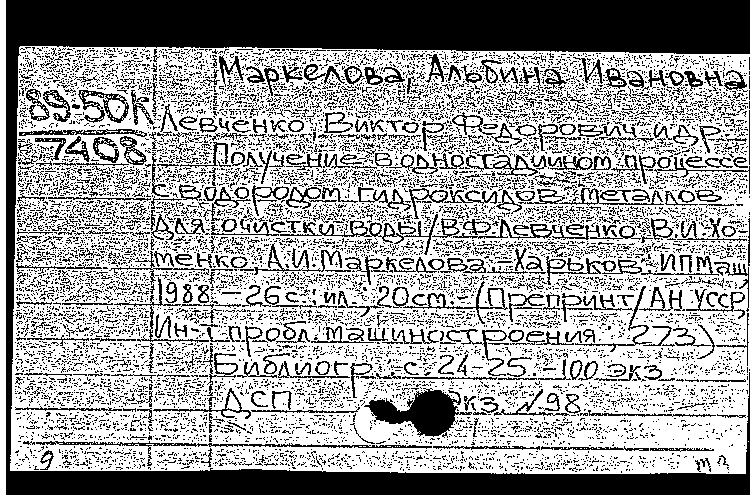 Маркелова, Альбина Ивановна
89-50К
7408
Левченко, Виктор Федорович и др.
Получение в одностадийном процессе
с водородом гидроксидов металлов
для очистки воды/В.Ф.Левченко, В.И.Хо-
менко, А.И.Маркелова.-Харьков: ИПМаш,
1988.-26с.:ил.; 20см.-(Препринт/АН УССР,
Ин-т пробл.машиностроения; 273)
Библиогр.: с.24-25.-100 экз
ДСП Экз. №98
9